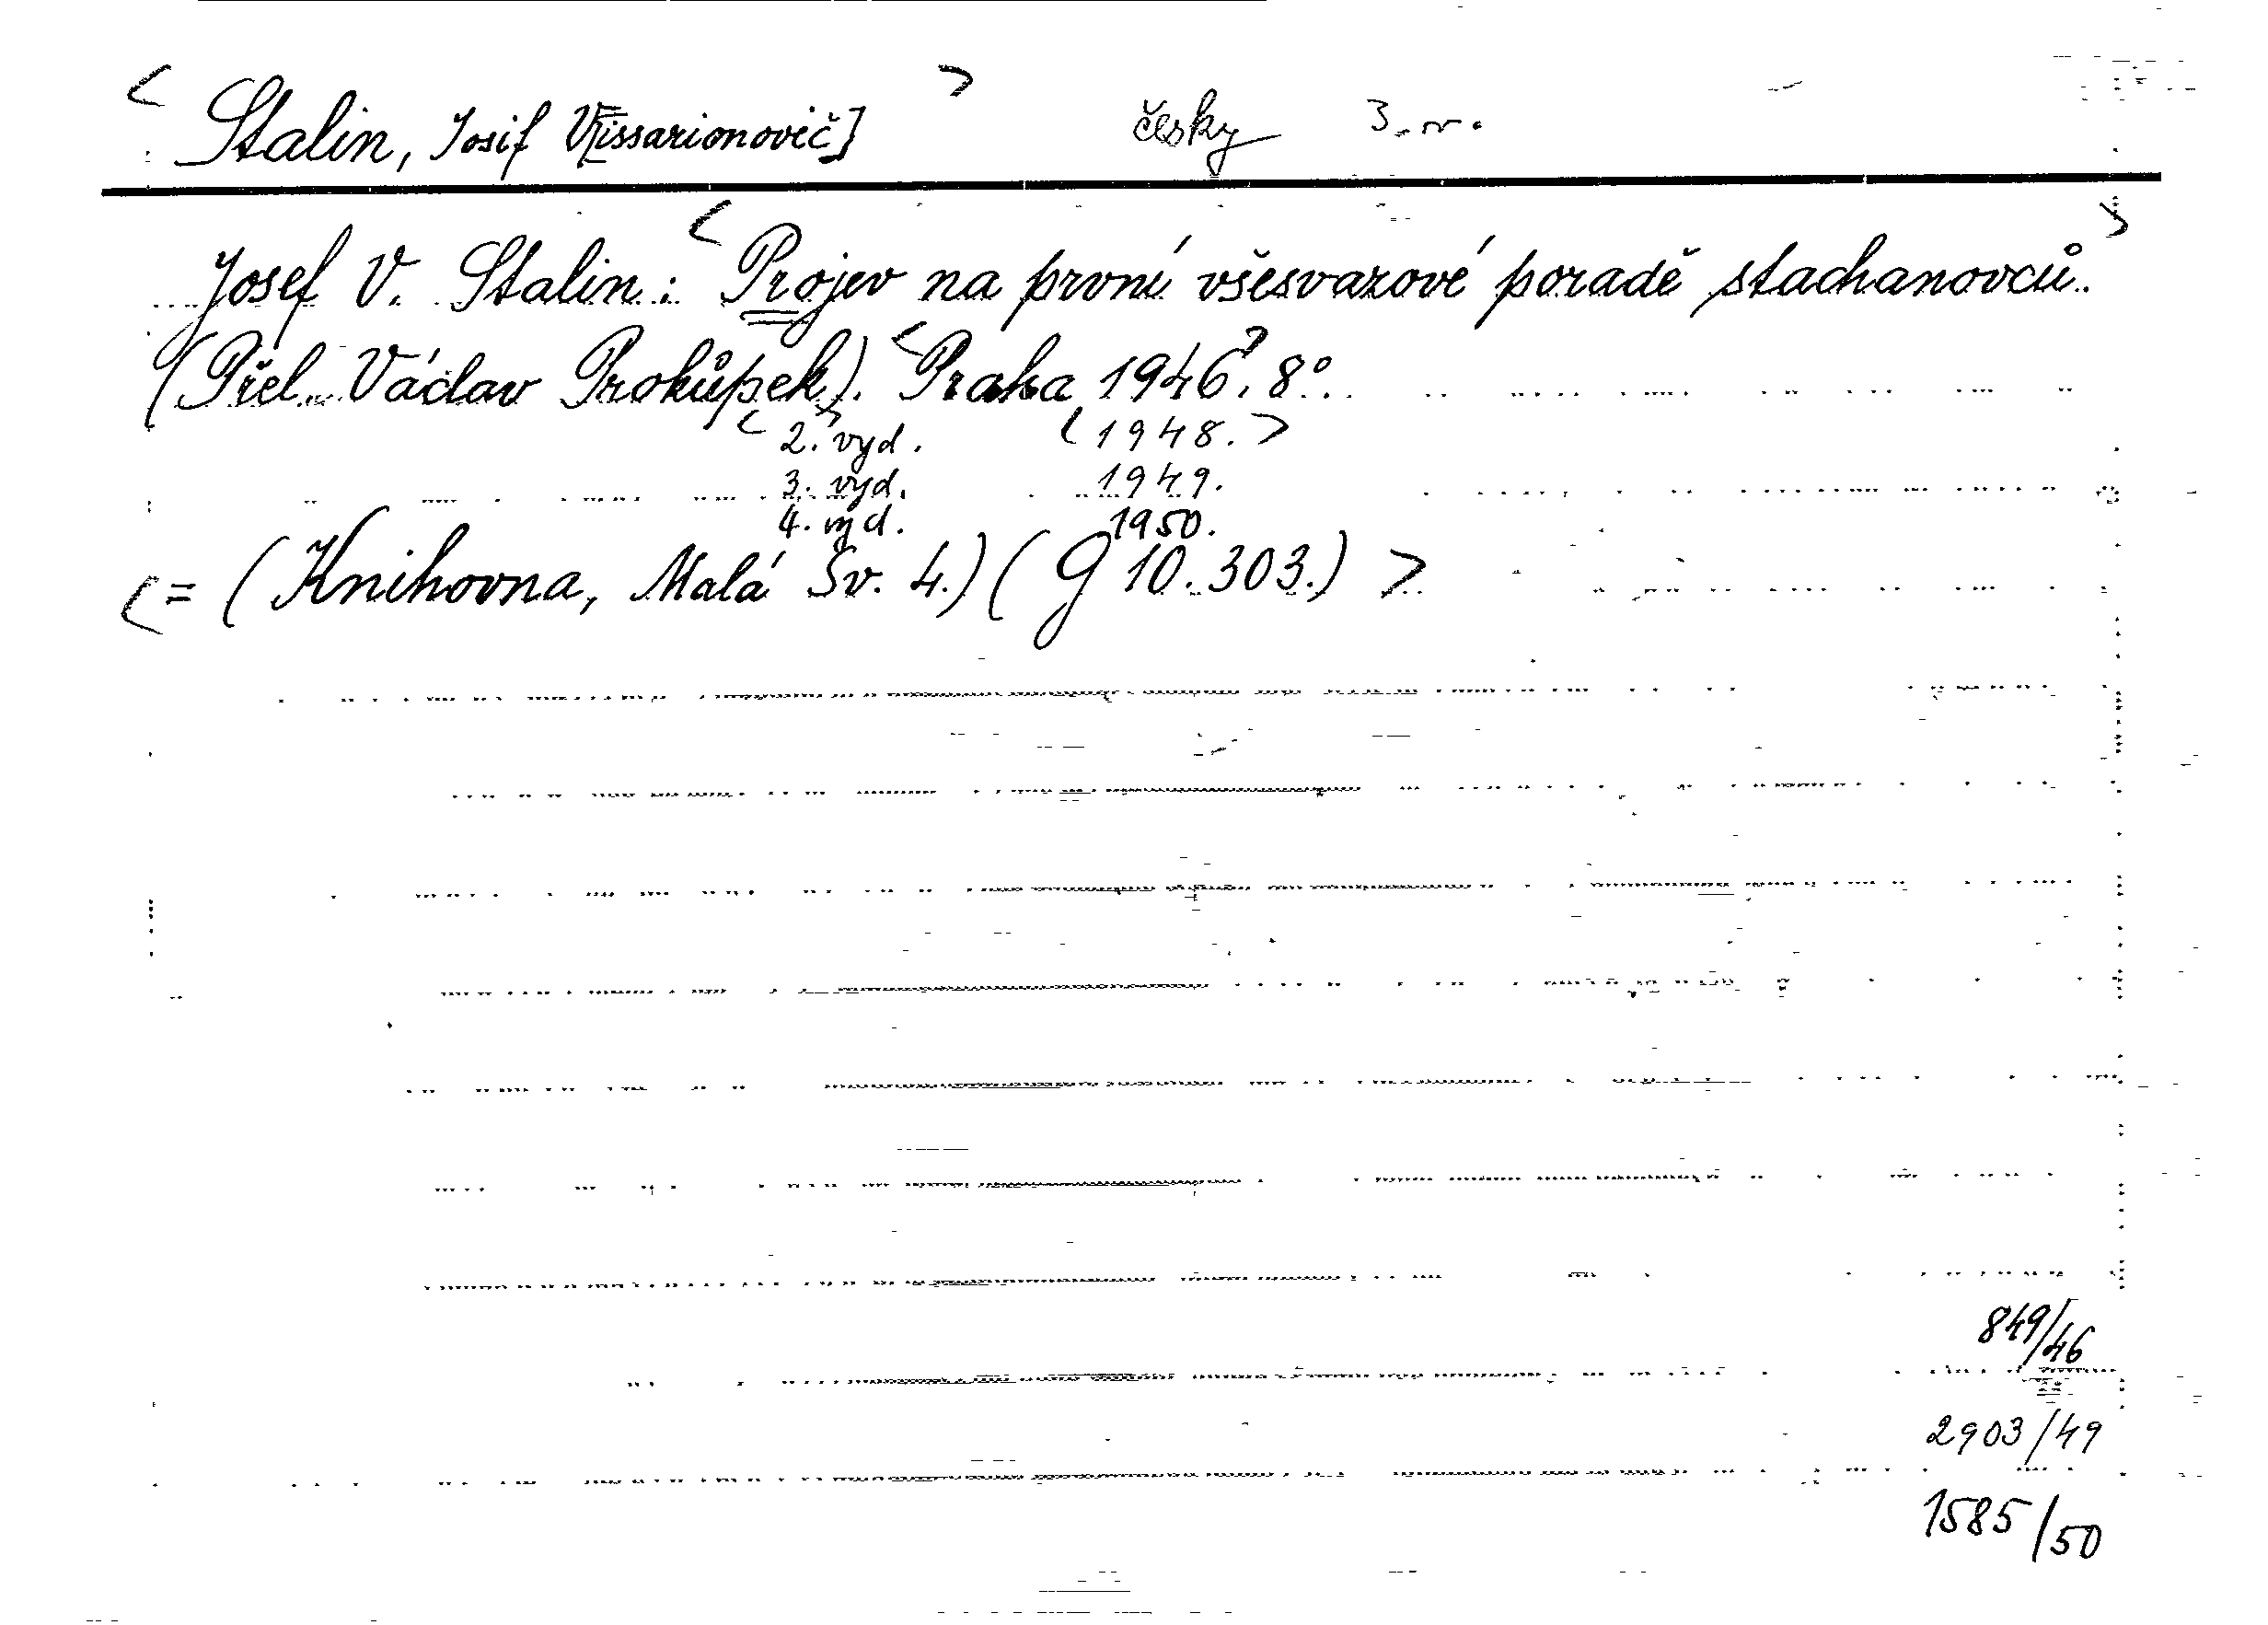 < Stalin, Josif V[issarionovič] > česky 3. v.
Josef V. Stalin: < Projev na první všesvazové poradě stachanovců. >
(Přel. Václav Prokůpek). < Praha 1946>. 8°.
< 2. vyd. > < 1948. >
3. vyd. 1949.
4. vyd. 1950.
< = (Knihovna, Malá Sv. 4.) (G 10.303.) >
849/46
2903/49
1585/50